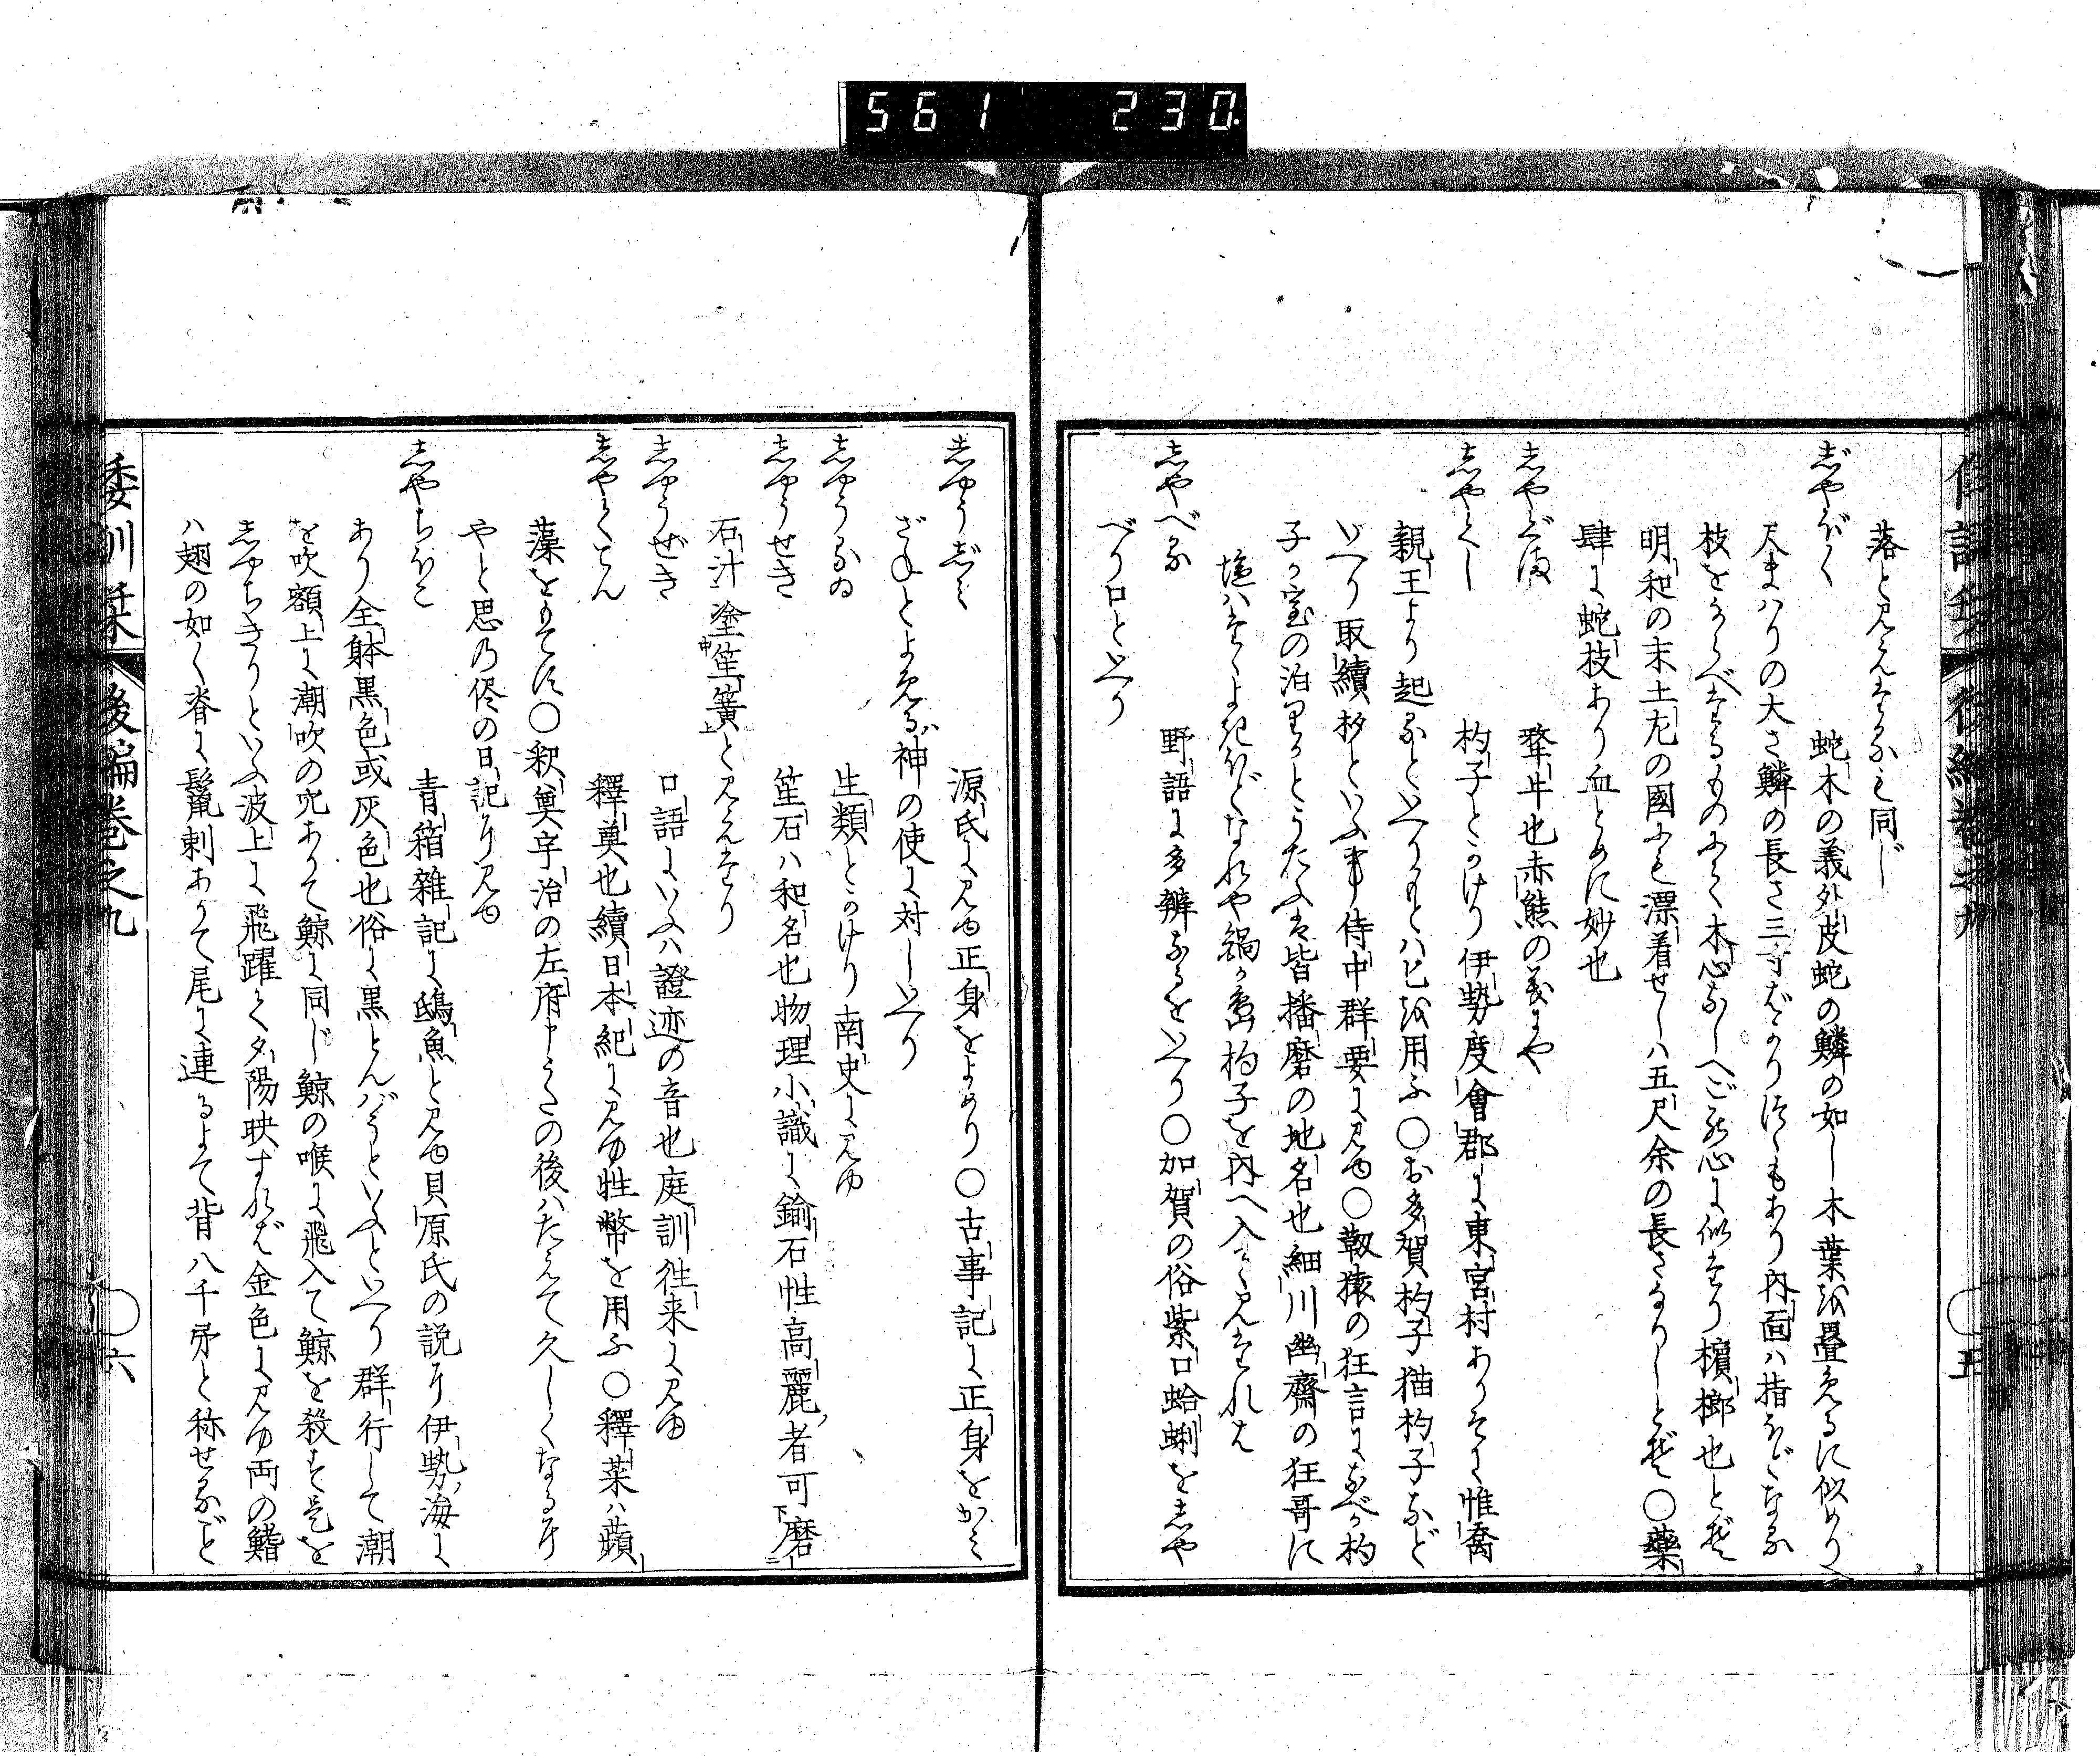 561 230
落と見えたるも同じ
じやぼく 蛇木の義外皮蛇の鱗の如し木葉を畳めるに似めり
大まハりの大さ鱗の長さ三寸ばかりにくもあり内面ハ指ほどなる
枝をならべたるものにて木心なしへごの心に似たり檳榔也とぞ
明和の末土左の國にも漂着せしハ五尺余の長さなりしとぞ○藥
肆に蛇枝あり血とめに妙也
志やぐま 犛牛也赤熊の義にや
志やくし 杓子とかけり伊勢度會郡に東宮村ありそこに惟喬
親王より起るといへりもとハ匕を用ふ○お多賀杓子猫杓子など
いへり取續杉といふ事侍中群要に見ゆ○靱猿の狂言になべが杓
子が室の泊りとうたふは皆播磨の地名也細川幽齋の狂哥に
塩ハたゞよきほどなれや鍋が嶌杓子を内へ入て見たれは
志やべる 野語に多辨なるをいへり○加賀の俗紫口蛤蜊を志や
べり口といへり
志やうじみ 源氏に見ゆ正身をよめり○古事記に正身をかみ
ざねとよめるハ神の使に対しいへり
志やうるゐ 生類とかけり南史に見ゆ
志やうせき 笙石ハ和名也物理小識に鍮石性高麗者可下磨二
石汁一塗中笙簧上と見えたり
志やうぜき 口語にいふハ證迹の音也庭訓往来に見ゆ
志やくてん 釋奠也續日本紀に見ゆ牲幣を用ふ○釋菜ハ蘋
藻をもてす○釈奠宇治の左府申うたの後ハたえて久しくなるけ
やと思乃侭の日記に見ゆ
志やちほこ 青箱雜記に鴟魚と見ゆ貝原氏の説に伊勢海に
あり全躰黒色或灰色也俗に黒とんばうといふといへり群行して潮
を吹額上に潮吹の穴ありて鯨に同じ鯨の喉に飛入て鯨を殺す是を
志やちきりといふ波上に飛躍して夕陽映すれば金色に見ゆ両の鰭
ハ翅の如く脊に鬣刺ありて尾に連るよて背八千矛と称せるなど
倭訓栞 後編巻之九 五
倭訓栞 後編巻之九 六